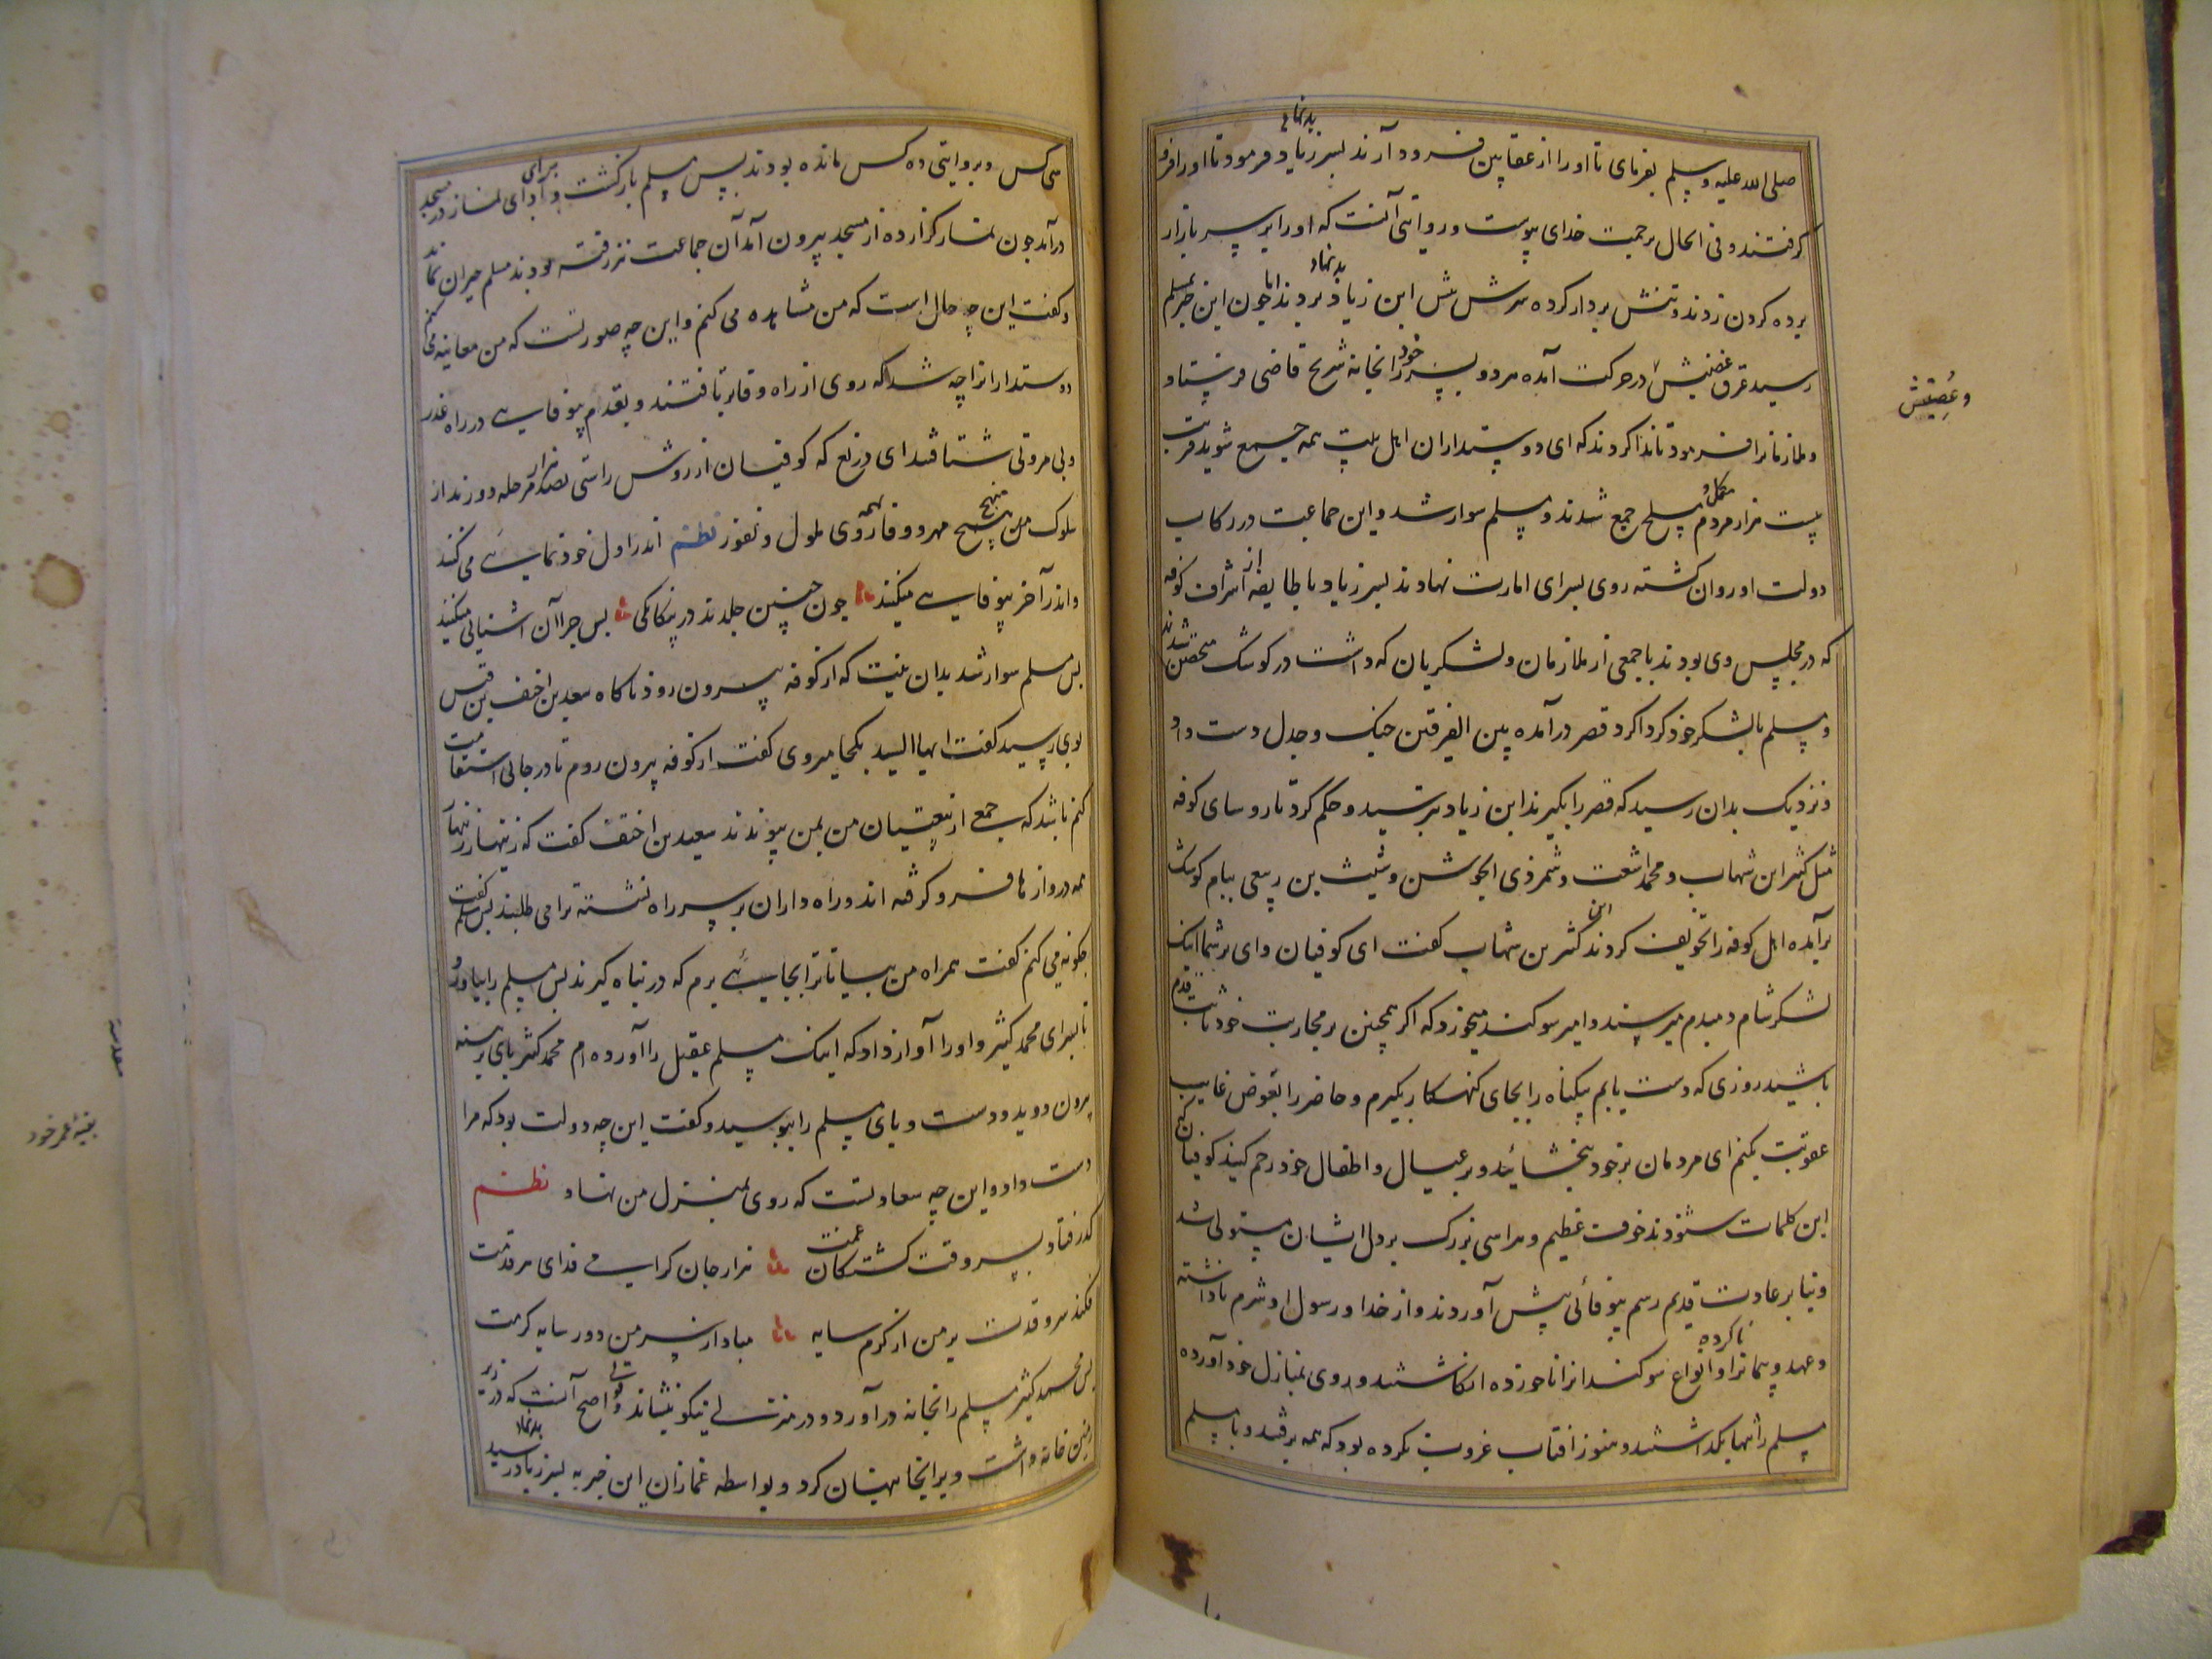 صلی الله علیه وسلم بفرمای تا او را از عقابین فرود آرند پسر زیاد بدنهاد فرمود تا او را فرو
گرفتند و فی الحال برحمت خدای پیوست و روایتی آنست که او را بر سر بازار
برده گردن زدند و تنش بردار کرده سرش پیش ابن زیاد بدنهاد بردند اما چون این خبر بمسلم
رسید عرق غضبش در حرکت آمده هر دو پسر خود را بخانه شریح قاضی فرستاد
و ملازمانرا فرمود تا ندا کردند که ای دوستداران اهل بیت همه جمع شوید قریب
بیست هزار مردم مکمل و مسلح جمع شدند و مسلم سوار شد و این جماعت در رکاب
دولت او روان گشته روی بسرای امارت نهادند پسر زیاد با طایفه از اشراف کوفه
که در مجلس وی بودند با جمعی از ملازمان و لشکریان که داشت در کوشک متحصن شدند
و مسلم با لشکر خود گرداگرد قصر درآمده بین الفرقتین جنک و جدل دست داد
و نزدیک بدان رسید که قصر را بگیرند ابن زیاد بترسید و حکم کرد تا روسای کوفه
مثل کثیر ابن شهاب و محمد اشعث و شمر ذی الجوشن و شیث بن ربعی ببام کوشک
برآمده اهل کوفه را تخویف کردند کثیر بن شهاب گفت ای کوفیان وای بر شما اینک
لشکر شام دمبدم میرسند و امیر سوگند میخورد که اگر همچنین بر محاربت خود ثابت قدم
باشید روزی که دست یابم بیکناه را بجای کنهکار بگیرم و حاضر را بعوض غایب
عقوبت بکنم ای مردمان برخود ببخشائید و بر عیال و اطفال خود رحم کنید کوفیان که
این کلمات شنودند خوف عظیم و هراسی بزرک بر دل ایشان مستولی شد
و بنا بر عادت قدیم رسم بیوفائی پیش آوردند و از خدا و رسول او شرم ناداشته
و عهد و پیمانرا و انواع سوگندانرا ناکرده ناخورده انکاشتند و روی بمنازل خود آورده
مسلم را تنها بگذاشتند و هنوز آفتاب غروب نکرده بود که همه برفتند و با مسلم
سی کس و بروایتی ده کس مانده بودند پس مسلم بازگشت و برای ادای نماز در مسجد
درآمد چون نماز گزارده از مسجد بیرون آمد آن جماعت نیز رفته بودند مسلم حیران بماند
و گفت این چه حال است که من مشاهده می کنم و این چه صورتست که من معاینه می کنم
دوستدارانرا چه شد که روی از راه وفا برتافتند و بقدم بیوفایی در راه غدر
و بی مروتی شتافتند ای دریغ که کوفیان از روش راستی بصد هزار مرحله دورند از
سلوک منهج مهر و وفا همه روی ملول و نفور نظم اندر اول خود نمایی می کند
و اندر آخر بیوفایی میکنند چون چنین جلدند در بیگانگی پس چرا آن آشنایی میکنند
پس مسلم سوار شد بدان نیت که از کوفه بیرون رود ناگاه سعید بن احنف بن قیس
بوی رسید گفت ایها السید بکجا میروی گفت از کوفه بیرون روم تا در جائی استقامت
کنم باشد که جمعی از بیعتیان من بمن پیوندند سعید بن احنف گفت که زینهار زینهار
همه دروازها فرو گرفته اند و راه داران بر سر راه نشسته ترا می طلبند پس مسلم گفت
چکونه می کنم گفت همراه من بیا تا ترا بجایی برم که در پناه گیرند پس مسلم را بیاورد
تا بسرای محمد کثیر و او را آواز داد که اینک مسلم عقیل را آورده ام محمد کثیر پای برهنه
بیرون دوید و دست و پای مسلم را ببوسید و گفت این چه دولت بود که مرا
دست داد و این چه سعادتست که روی بمنزل من نهاد نظم
گذر فتاد بسر وقت کشتکان غمت هزار جان گرامی فدای هر قدمت
فکند سرو قدت بر من از کرم سایه مباد از سر من دور سایه کرمت
پس محمد کثیر مسلم را بخانه درآورد و در منزلی نیکو بنشاند و اصح آنست که در زیر
زمین خانه داشت ویرا آنجا پنهان کرد و بواسطه غمازان این خبر به پسر زیاد بدنهاد رسید
بقیه عمر خود